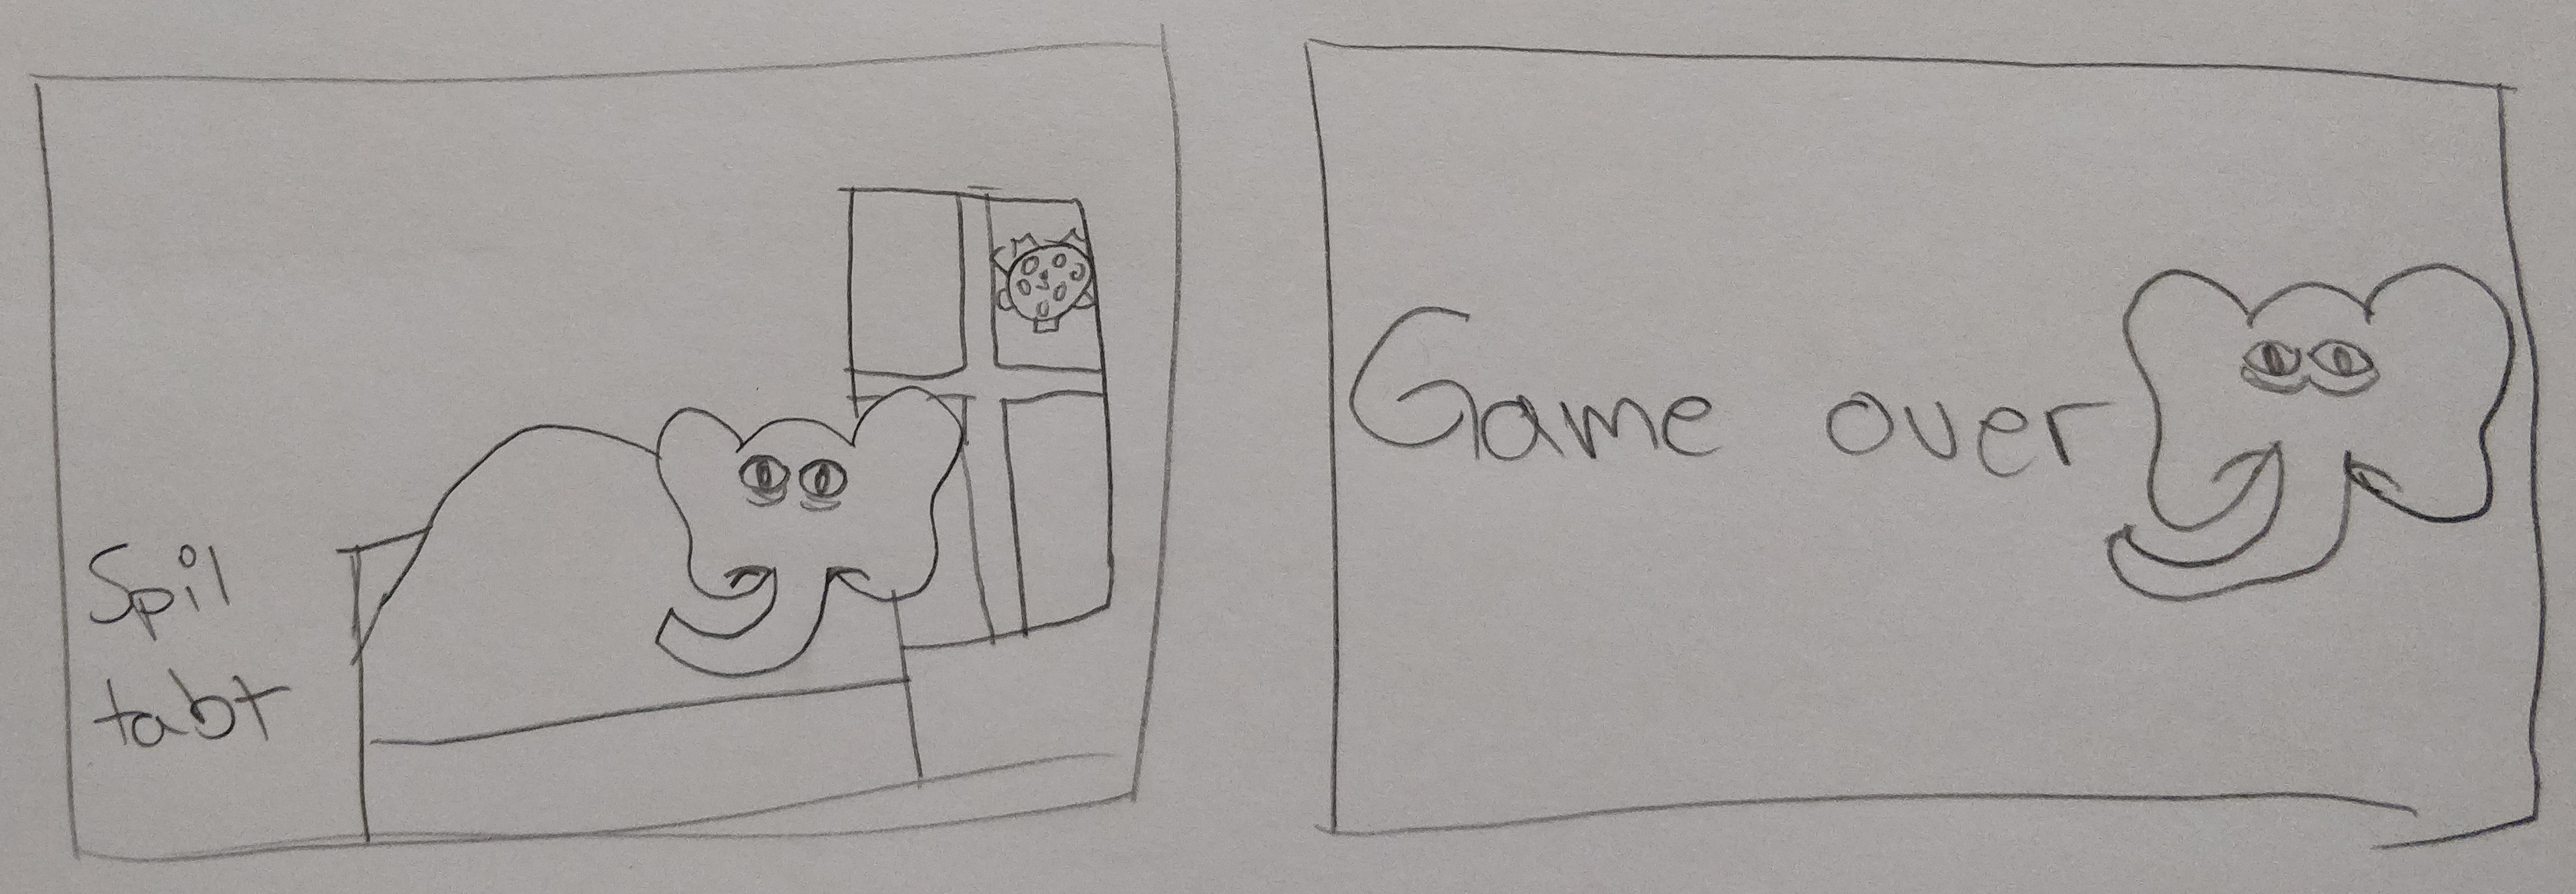 Spil
tabt
Game over